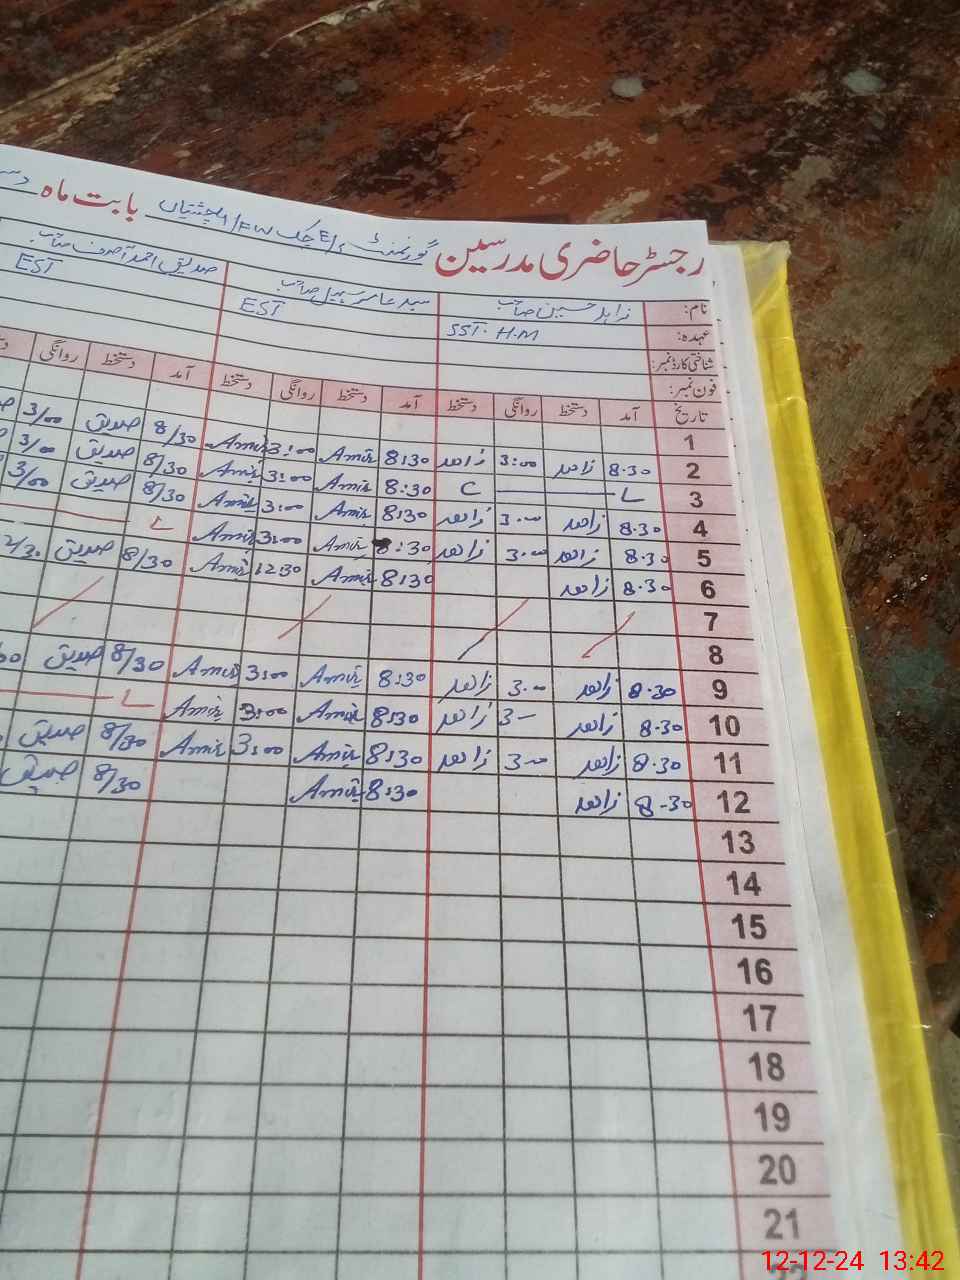 رجسٹر حاضری مدرسین گورنمنٹ بابت ماہ
نام: زاہد حسین صاحب سید عامر سہیل صاحب صدیق احمد آصف صاحب
عہدہ: SST. H.M EST EST
شناختی کارڈ نمبر:
فون نمبر:
تاریخ آمد دستخط روانگی دستخط آمد دستخط روانگی دستخط آمد دستخط روانگی
1
2 8.30 زاہد 3:00 زاہد 8:30 Amir 3:00 Amir 8/30 صدیق 3/00
3 L C 8:30 Amir 3:00 Amir 8/30 صدیق 3/00
4 8.30 زاہد 3.00 زاہد 8:30 Amir 3:00 Amir 8/30 صدیق 3/00
5 8.30 زاہد 3.00 زاہد 8:30 Amir 3:00 Amir L
6 8.30 زاہد 8:30 Amir 12:30 Amir 8/30 صدیق
7
8
9 8.30 زاہد 3.00 زاہد 8:30 Amir 3:00 Amir 8/30 صدیق
10 8.30 زاہد 3- زاہد 8:30 Amir 3:00 Amir L
11 8.30 زاہد 3.00 زاہد 8:30 Amir 3:00 Amir 8/30 صدیق
12 8.30 زاہد 8:30 Amir 8/30 صدیق
13
14
15
16
17
18
19
20
21
12-12-24 13:42